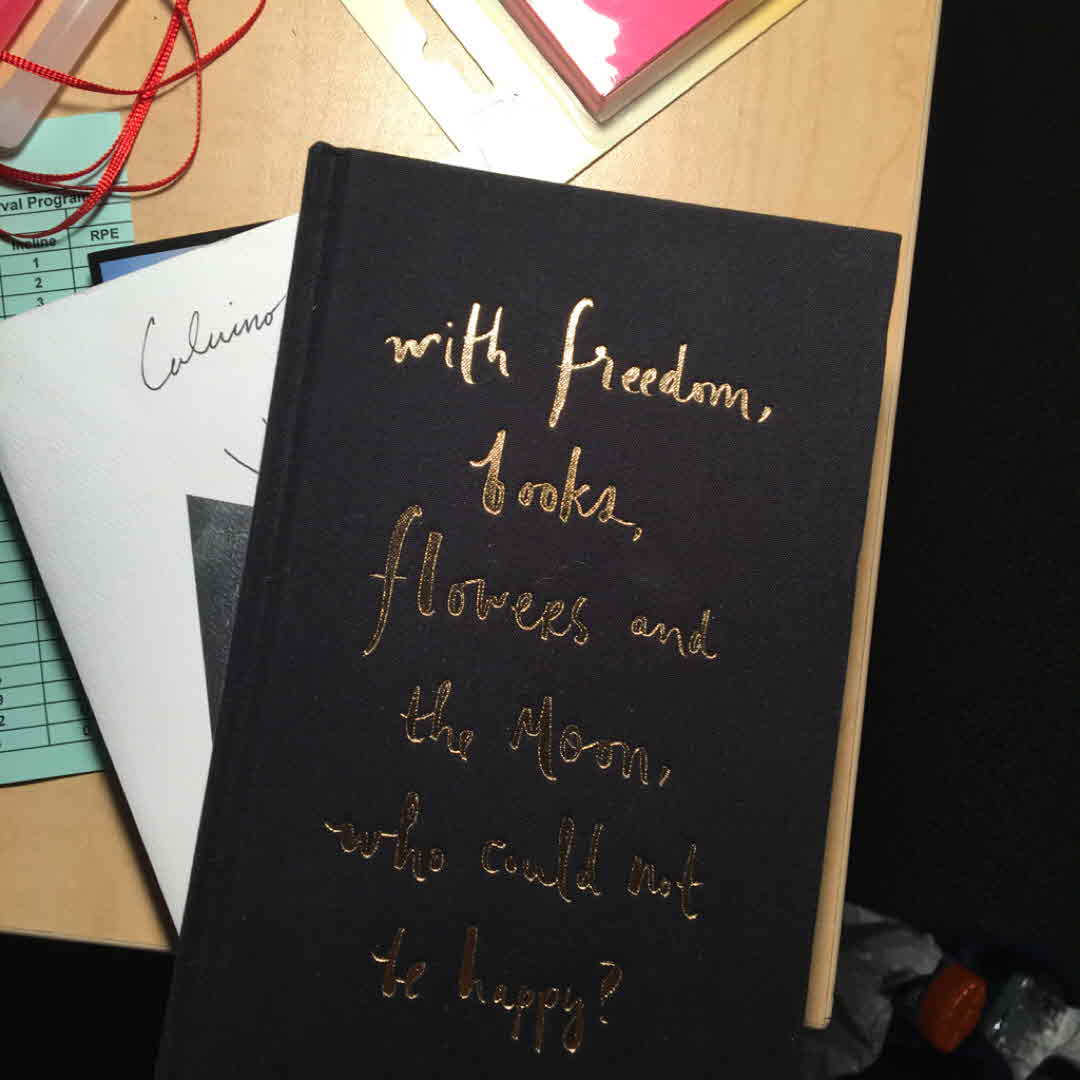 with freedom,
books,
flowers and
the Moon,
who could not
be happy?
Calvino
val Program
Incline RPE
1
2
3